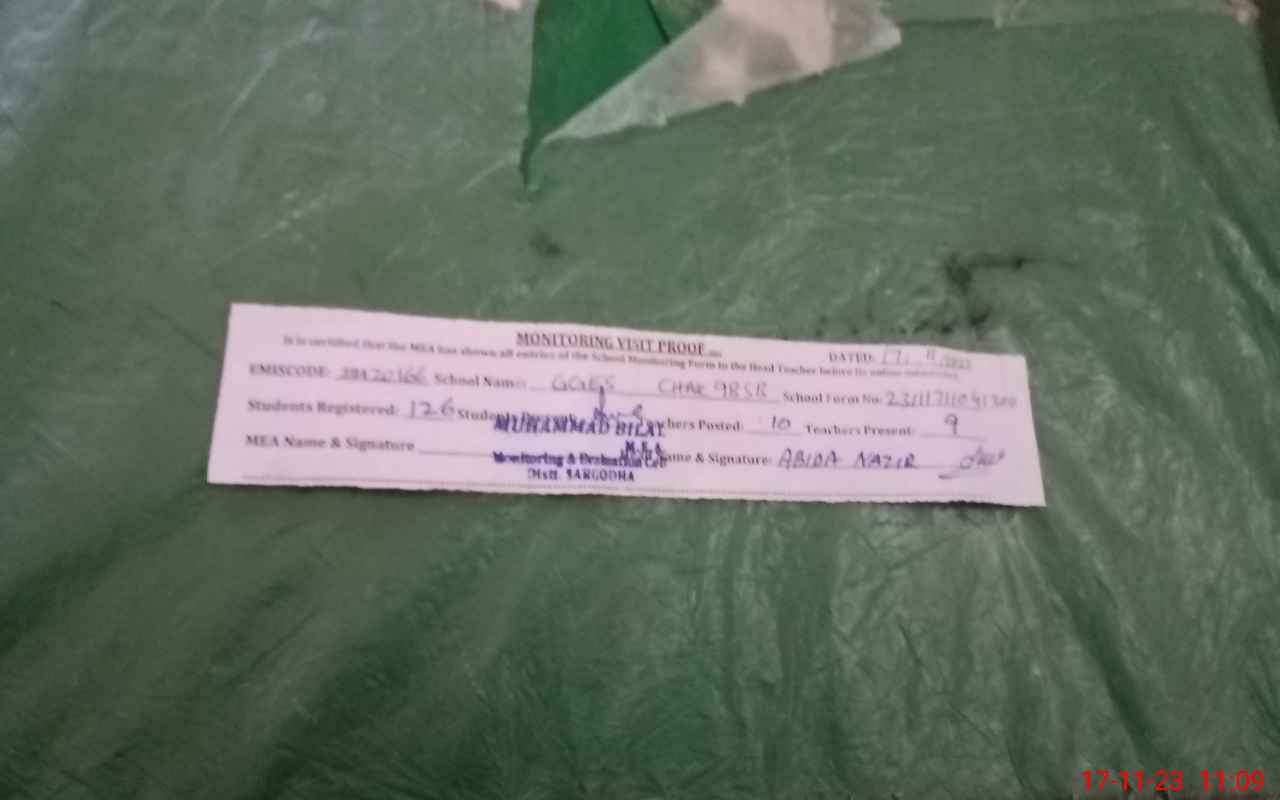 MONITORING VISIT PROOF
DATED: 17. 11/2023
It is certified that the MEA has shown all entries of the School Monitoring Form to the Head Teacher before its online submission.
EMISCODE: School Name GGES CHAK 98SB School Form No:
Students Registered: 126 Students Teachers Posted: 10 Teachers Present: 9
MEA Name & Signature Name & Signature: ABIDA NAZIR
MUHAMMAD BILAL
M.E.A
Monitoring & Evaluation Cell
Distt. SARGODHA
17-11-23 11:09